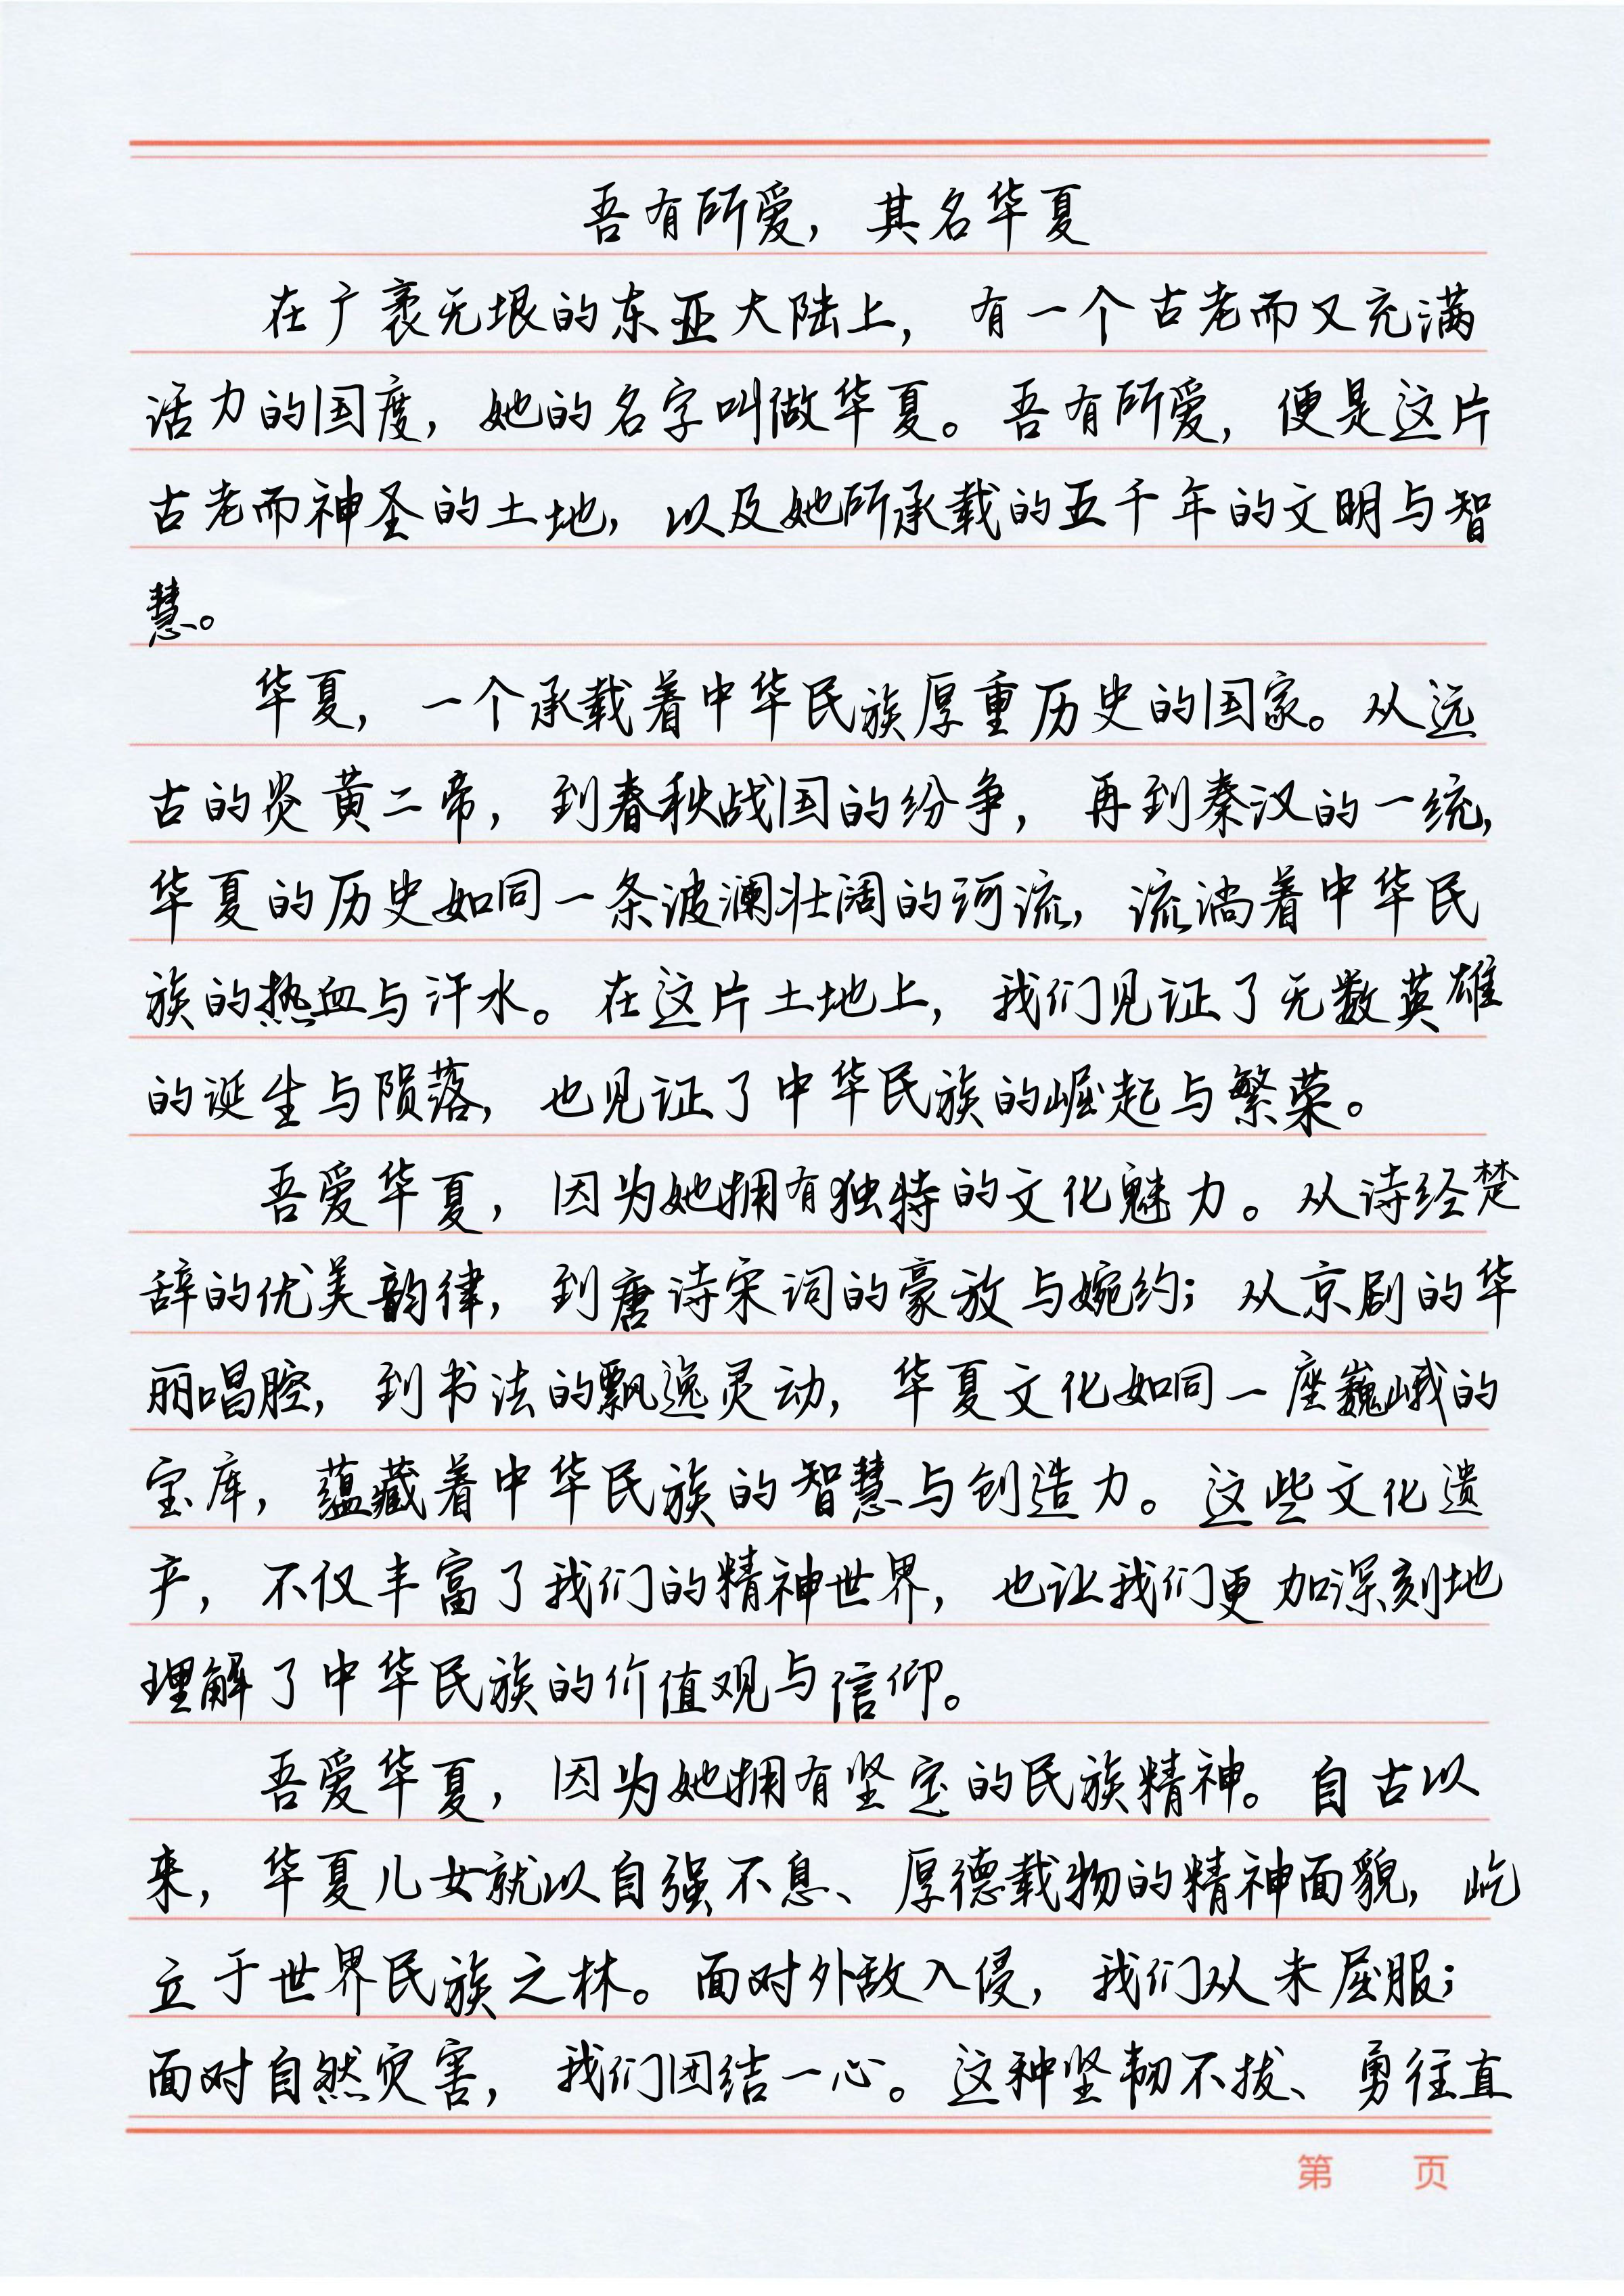 吾有所爱，其名华夏
在广袤无垠的东亚大陆上，有一个古老而又充满
活力的国度，她的名字叫做华夏。吾有所爱，便是这片
古老而神圣的土地，以及她所承载的五千年的文明与智
慧。
华夏，一个承载着中华民族厚重历史的国家。从远
古的炎黄二帝，到春秋战国的纷争，再到秦汉的一统，
华夏的历史如同一条波澜壮阔的河流，流淌着中华民
族的热血与汗水。在这片土地上，我们见证了无数英雄
的诞生与陨落，也见证了中华民族的崛起与繁荣。
吾爱华夏，因为她拥有独特的文化魅力。从诗经楚
辞的优美韵律，到唐诗宋词的豪放与婉约；从京剧的华
丽唱腔，到书法的飘逸灵动，华夏文化如同一座巍峨的
宝库，蕴藏着中华民族的智慧与创造力。这些文化遗
产，不仅丰富了我们的精神世界，也让我们更加深刻地
理解了中华民族的价值观与信仰。
吾爱华夏，因为她拥有坚定的民族精神。自古以
来，华夏儿女就以自强不息、厚德载物的精神面貌，屹
立于世界民族之林。面对外敌入侵，我们从未屈服；
面对自然灾害，我们团结一心。这种坚韧不拔、勇往直
第 页